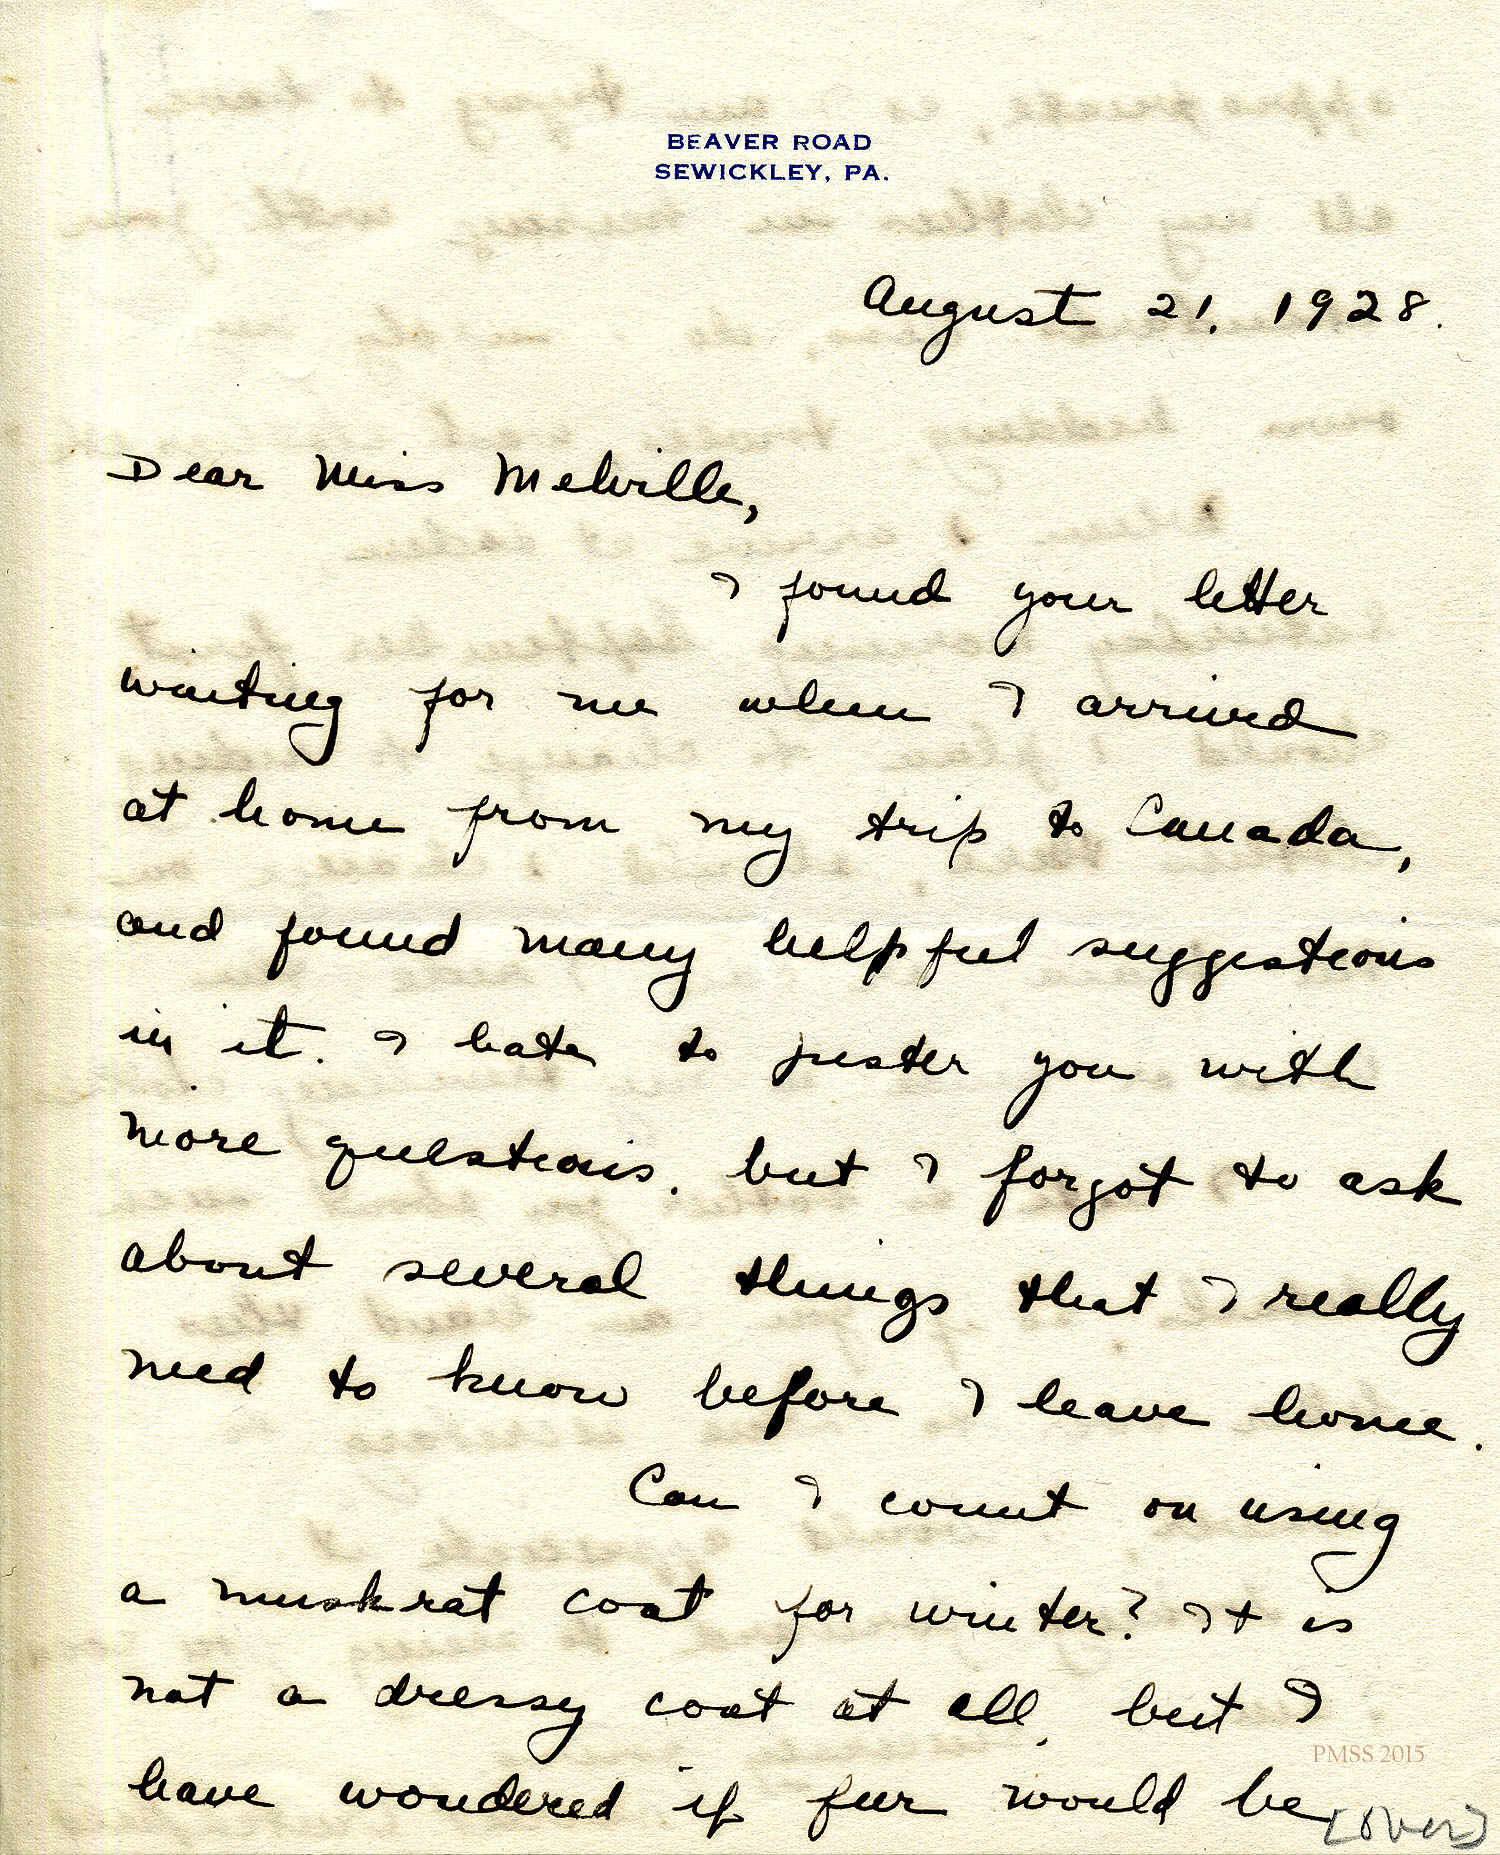 BEAVER ROAD
SEWICKLEY, PA.
August 21, 1928.
Dear Miss Melville,
I found your letter
waiting for me when I arrived
at home from my trip to Canada,
and found many helpful suggestions
in it. I hate to pester you with
more questions, but I forgot to ask
about several things that I really
need to know before I leave home.
Can I count on using
a muskrat coat for winter? It is
not a dressy coat at all, but I
have wondered if fur would be
[over]
PMSS 2015